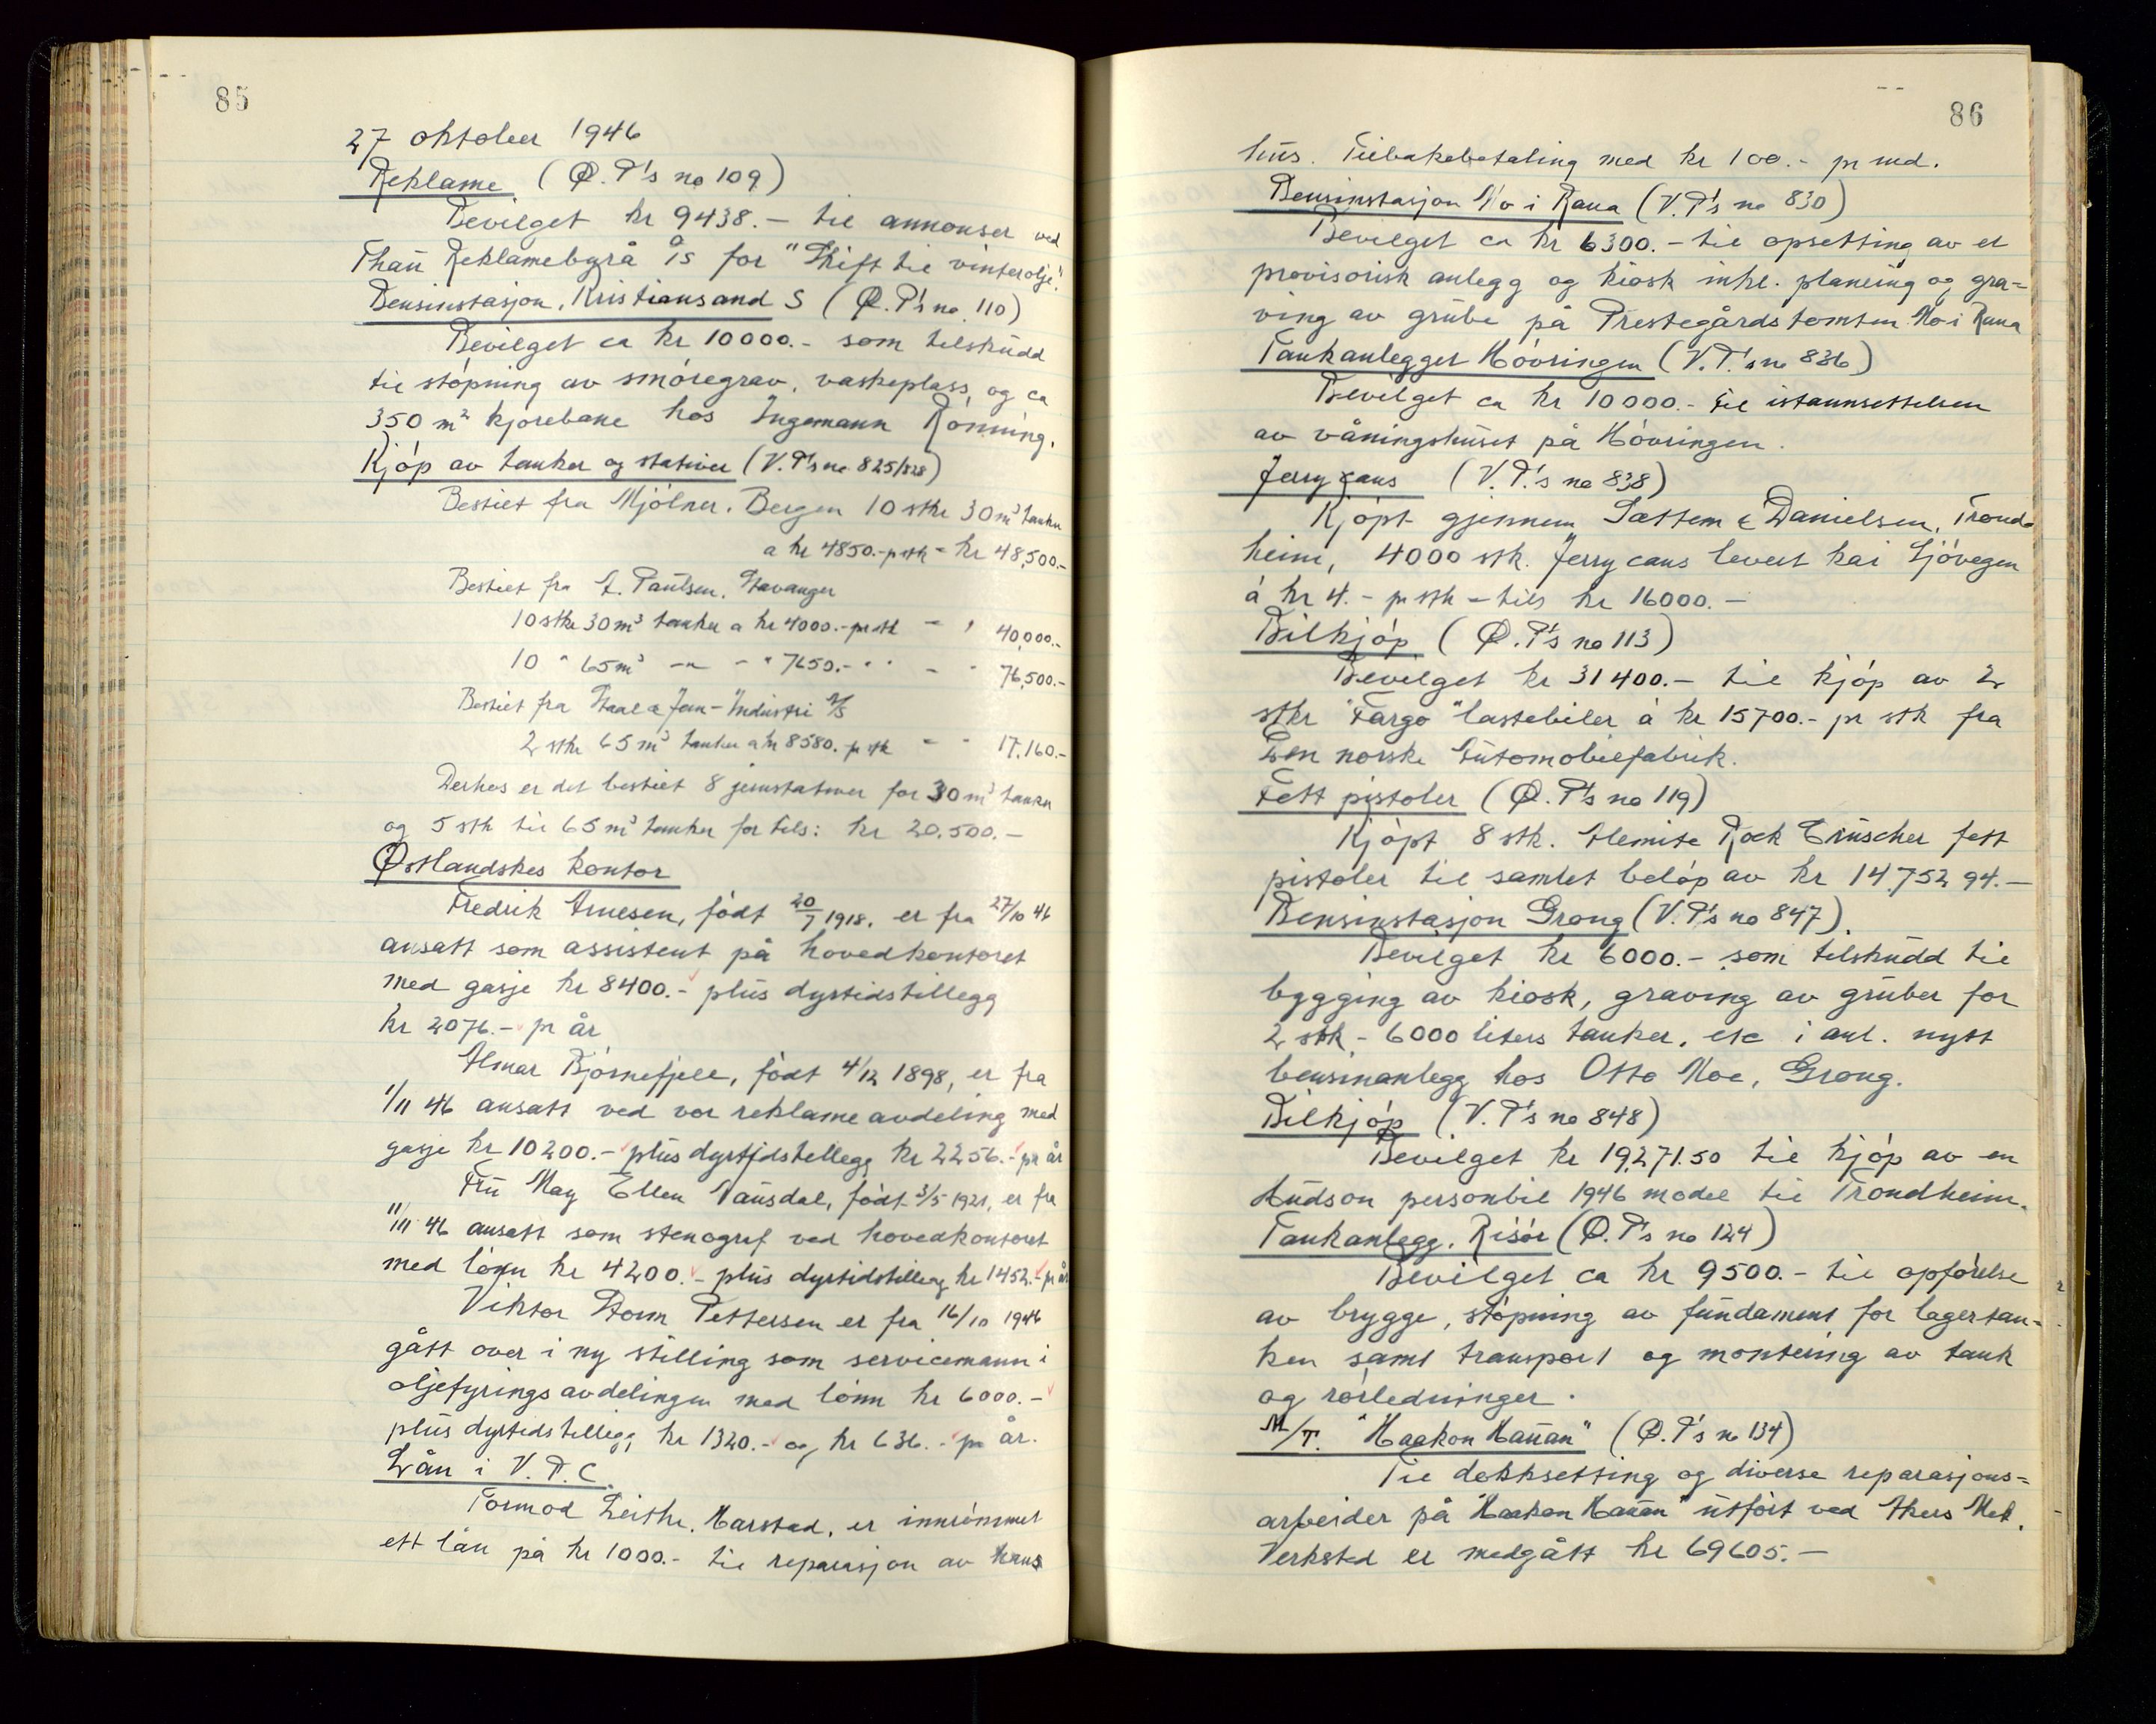 85
27 oktober 1946
Reklame (Ø.P's no 109)
Bevilget kr 9438.- til annonser ved
Thau Reklamebyrå A/s for "Skift til vinterolje".
Bensinstasjon, Kristiansand S (Ø.P's no 110)
Bevilget ca kr 10000.- som tilskudd
til støpning av smøregrav, vaskeplass, og ca
350 m² kjørebane hos Ingemann Rønning.
Kjøp av tanker og stativer (V.P's no 825/828)
Bestilt fra Mjølner, Bergen 10 stkr 30 m³ tanker
a kr 4850.- pr stk = kr 48,500.-
Bestilt fra Paulsen, Stavanger
10 stkr 30 m³ tanker a kr 4000.- pr stk = " 40,000.-
10 " 65 m³ -"- - " 7650.- " " = " 76,500.-
Bestilt fra Staal & Jern-Industri A/S
2 stkr 65 m³ tanker a kr 8580. pr stk = " 17,160.-
Derhos er det bestilt 8 jernstativer for 30 m³ tanker
og 5 stk til 65 m³ tanker for tils: kr 20.500.-
Østlandskes kontor
Fredrik Arnesen, født 20/7 1918, er fra 27/10 46
ansatt som assistent på hovedkontoret
med gasje kr 8400.- plus dyrtidstillegg
kr 2076.- pr år
Almar Bjørnefjell, født 4/12 1898, er fra
1/11 46 ansatt ved vor reklameavdeling med
gasje kr 10200.- plus dyrtidstillegg kr 2256.- pr år
Fru May Ellen Vausdal, født 3/5 1921, er fra
11/11 46 ansatt som stenograf ved hovedkontoret
med lønn kr 4200.- plus dyrtidstillegg kr 1452.- pr år
Viktor Storm Pettersen er fra 16/10 1946
gått over i ny stilling som servicemann i
oljefyringsavdelingen med lønn kr 6000.-
plus dyrtidstillegg kr 1320.- og kr 636.- pr år.
Lån i V.P.C.
Tormod Leithe, Harstad, er innrømmet
ett lån på kr 1000.- til reparasjon av hans
86
hus. Tilbakebetaling med kr 100.- pr md.
Bensinstasjon Mo i Rana (V.P's no 830)
Bevilget ca kr 6300.- til opsetting av et
provisorisk anlegg og kiosk inkl. planering og gra=
ving av grube på Prestegårdstomten Mo i Rana
Tankanlegget Høvringen (V.P.'s no 836)
Bevilget ca kr 10000.- til istannsettelsen
av våningshuset på Høvringen.
Jerrycans (V.P.'s no 838)
Kjøpt gjennem Sættem & Danielsen, Trond=
heim, 4000 stk. Jerrycans levert kai Sjøvegen
á kr 4.- pr stk = tils kr 16000.-
Bilkjøp (Ø.P's no 113)
Bevilget kr 31400.- til kjøp av 2
stkr "Fargo" lastebiler á kr 15700.- pr stk fra
Den norske Automobilfabrik.
Fett pistoler (Ø.P's no 119)
Kjøpt 8 stk. Alemite Rock Cruscher fett
pistoler til samlet beløp av kr 14,752 94.-
Bensinstasjon Grong (V.P's no 847)
Bevilget kr 6000.- som tilskudd til
bygging av kiosk, graving av gruber for
2 stk - 6000 liters tanker, etc i anl. nytt
bensinanlegg hos Otto Moe, Grong.
Bilkjøp (V.P's no 848)
Bevilget kr 19,271.50 til kjøp av en
Hudson personbil 1946 model til Trondheim.
Tankanlegg, Risør (Ø.P's no 124)
Bevilget ca kr 9500.- til opførelse
av brygge, støpning av fundament for lagertan=
ken samt transport og montering av tank
og rørledninger.
M/T. "Haakon Hauan" (Ø.P's no 134)
Til dokksetting og diverse reparasjons=
arbeider på "Haakon Hauan" utført ved Akers Mek.
Verksted er medgått kr 69605.-